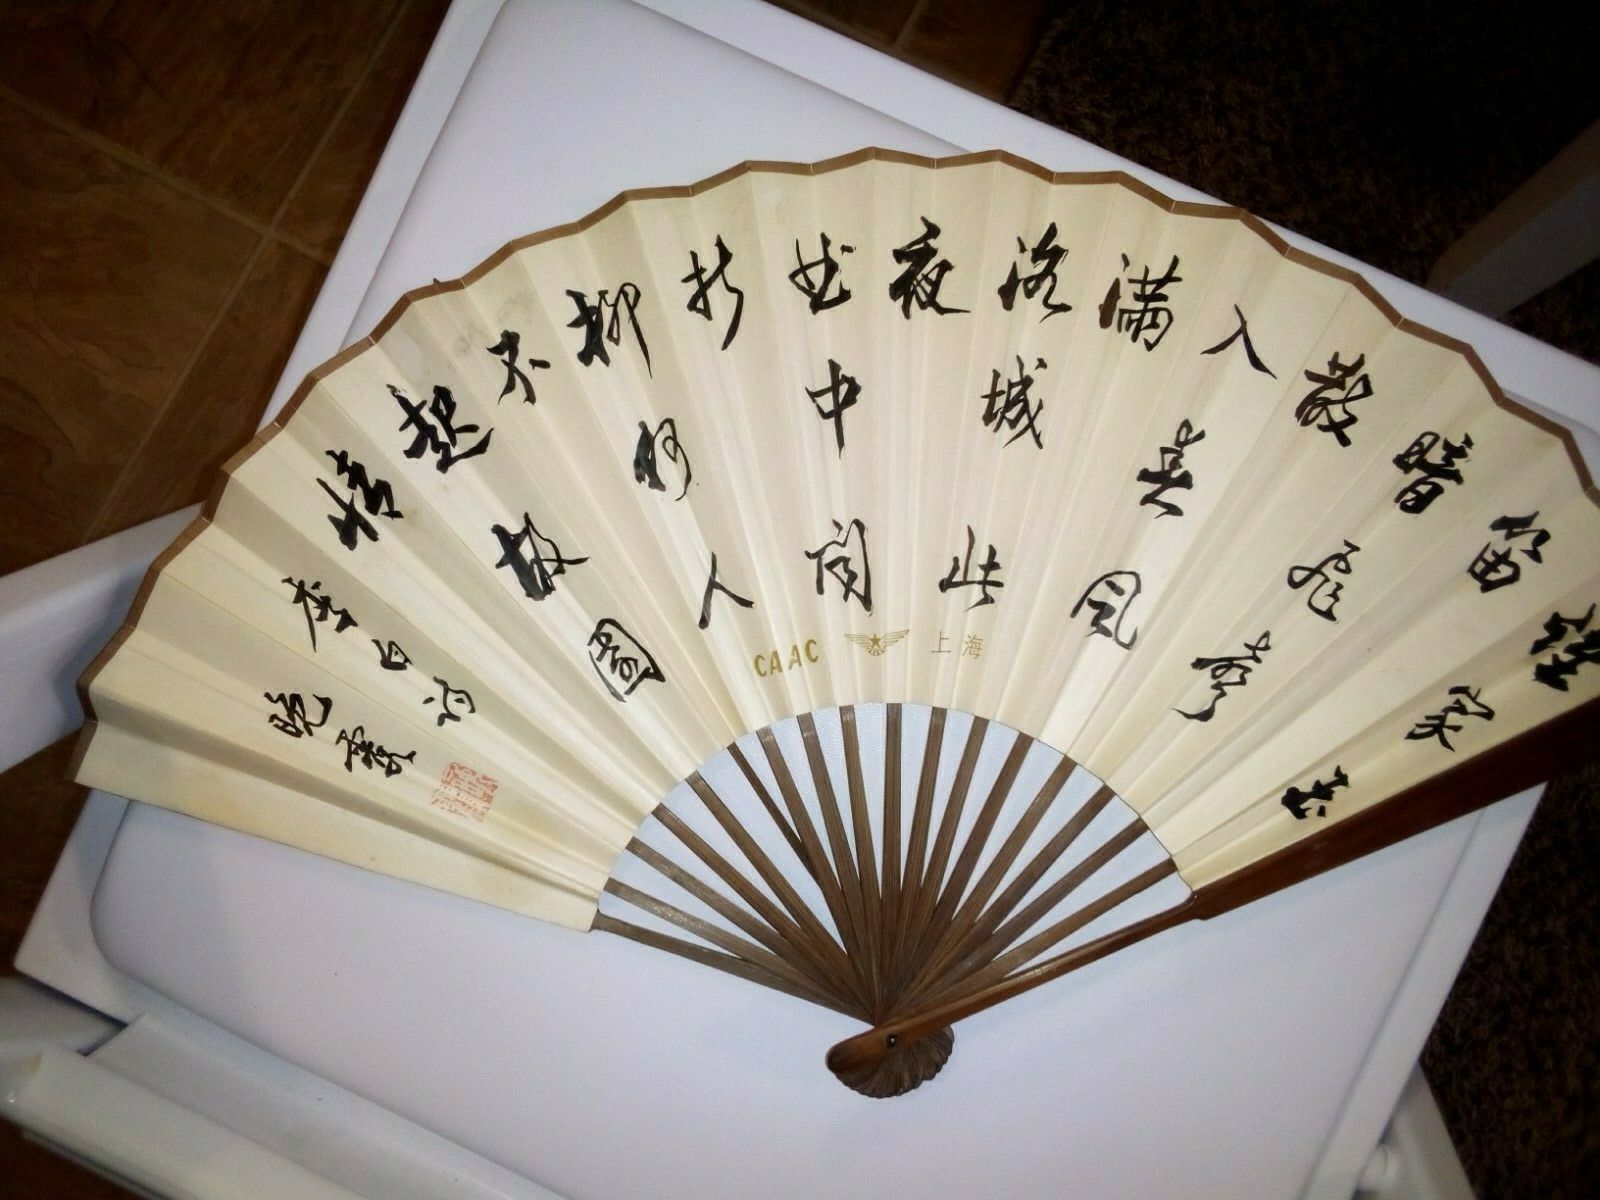 誰家玉
笛
暗飛聲
散
入春風
满
洛城此
夜
曲中闻
折
柳何人
不
起故園
情
李白
CAAC 上海